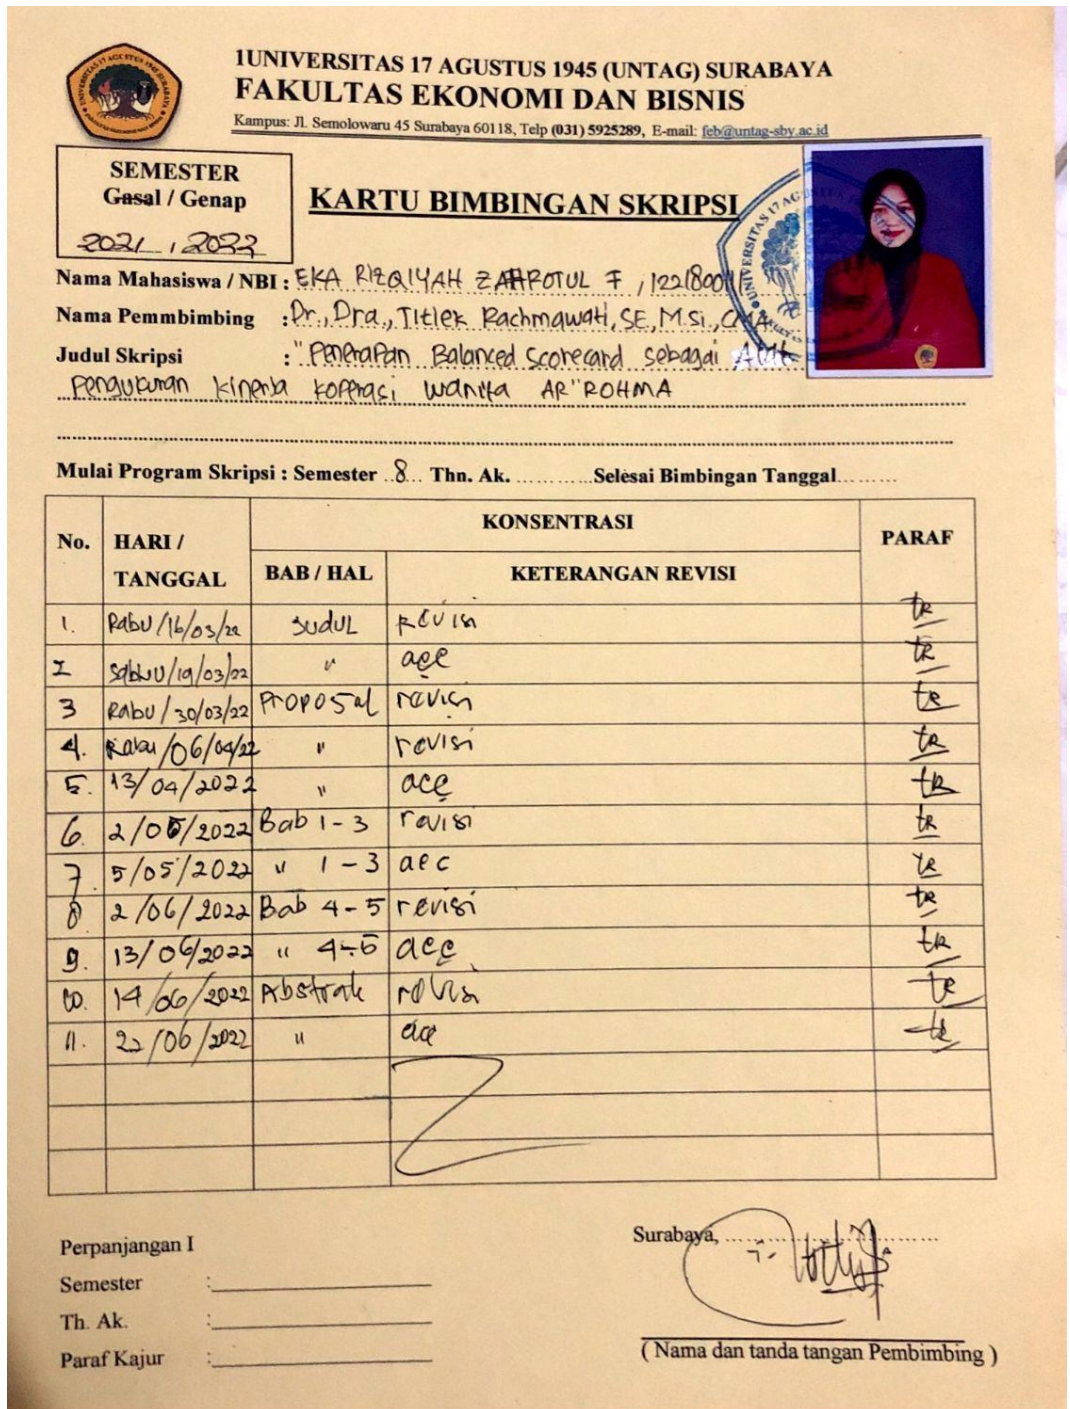 1UNIVERSITAS 17 AGUSTUS 1945 (UNTAG) SURABAYA
FAKULTAS EKONOMI DAN BISNIS
Kampus: Jl. Semolowaru 45 Surabaya 60118, Telp (031) 5925289, E-mail: feb@untag-sby.ac.id
SEMESTER
Gasal / Genap
2021 / 2022
KARTU BIMBINGAN SKRIPSI
Nama Mahasiswa / NBI : EKA RIZQIYAH ZAHROTUL F , 12218001
Nama Pemmbimbing : Dr., Dra., Titiek Rachmawati, SE., M.Si., CMA.
Judul Skripsi : "Penerapan Balanced Scorecard sebagai Alat
Pengukuran Kinerja Koperasi Wanita AR"ROHMA
Mulai Program Skripsi : Semester 8 Thn. Ak. ............ Selesai Bimbingan Tanggal.........
No. HARI / TANGGAL KONSENTRASI PARAF
BAB / HAL KETERANGAN REVISI
1. Rabu/16/03/22 Judul revisi tr
2 Sabtu/19/03/22 " acc tr
3 Rabu/30/03/22 Proposal revisi tr
4. Rabu/06/04/22 " revisi tr
5. 13/04/2022 " acc tr
6. 2/05/2022 Bab 1-3 revisi tr
7. 5/05/2022 " 1-3 acc tr
8 2/06/2022 Bab 4-5 revisi tr
9. 13/06/2022 " 4-5 acc tr
10. 14/06/2022 Abstrak revisi tr
11. 22/06/2022 " acc tr
Perpanjangan I
Semester :
Th. Ak. :
Paraf Kajur :
Surabaya, ....................
( Nama dan tanda tangan Pembimbing )